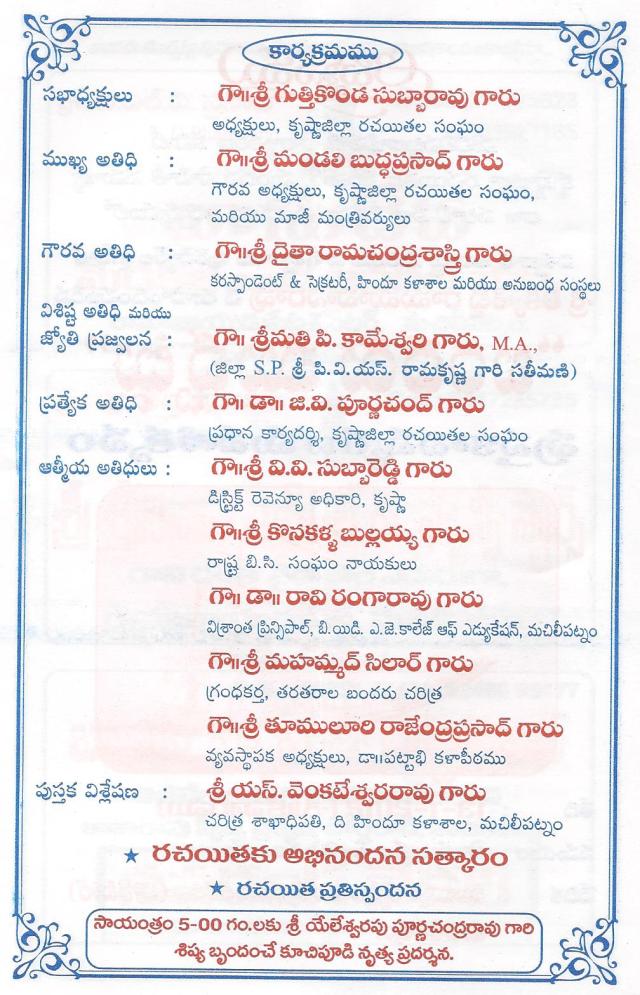 కార్యక్రమము
సభాధ్యక్షులు : గౌ॥శ్రీ గుత్తికొండ సుబ్బారావు గారు
అధ్యక్షులు, కృష్ణాజిల్లా రచయితల సంఘం
ముఖ్య అతిధి : గౌ॥శ్రీ మండలి బుద్ధప్రసాద్ గారు
గౌరవ అధ్యక్షులు, కృష్ణాజిల్లా రచయితల సంఘం,
మరియు మాజీ మంత్రివర్యులు
గౌరవ అతిధి : గౌ॥శ్రీ దైతా రామచంద్రశాస్త్రి గారు
కరస్పాండెంట్ & సెక్రటరీ, హిందూ కళాశాల మరియు అనుబంధ సంస్థలు
విశిష్ట అతిధి మరియు
జ్యోతి ప్రజ్వలన : గౌ॥ శ్రీమతి పి. కామేశ్వరి గారు, M.A.,
(జిల్లా S.P. శ్రీ పి.వి.యస్. రామకృష్ణ గారి సతీమణి)
ప్రత్యేక అతిధి : గౌ॥ డా॥ జి.వి. పూర్ణచంద్ గారు
ప్రధాన కార్యదర్శి, కృష్ణాజిల్లా రచయితల సంఘం
ఆత్మీయ అతిధులు : గౌ॥శ్రీ వి.వి. సుబ్బారెడ్డి గారు
డిస్ట్రిక్ట్ రెవెన్యూ అధికారి, కృష్ణా
గౌ॥శ్రీ కొనకళ్ళ బుల్లయ్య గారు
రాష్ట్ర బి.సి. సంఘం నాయకులు
గౌ॥ డా॥ రావి రంగారావు గారు
విశ్రాంత ప్రిన్సిపాల్, బి.యిడి. ఎ.జె.కాలేజ్ ఆఫ్ ఎడ్యుకేషన్, మచిలీపట్నం
గౌ॥శ్రీ మహమ్మద్ సిలార్ గారు
గ్రంధకర్త, తరతరాల బందరు చరిత్ర
గౌ॥శ్రీ తూములూరి రాజేంద్రప్రసాద్ గారు
వ్యవస్థాపక అధ్యక్షులు, డా॥పట్టాభి కళాపీఠము
పుస్తక విశ్లేషణ : శ్రీ యస్. వెంకటేశ్వరరావు గారు
చరిత్ర శాఖాధిపతి, ది హిందూ కళాశాల, మచిలీపట్నం
★ రచయితకు అభినందన సత్కారం
★ రచయిత ప్రతిస్పందన
సాయంత్రం 5-00 గం.లకు శ్రీ యేలేశ్వరపు పూర్ణచంద్రరావు గారి
శిష్య బృందంచే కూచిపూడి నృత్య ప్రదర్శన.